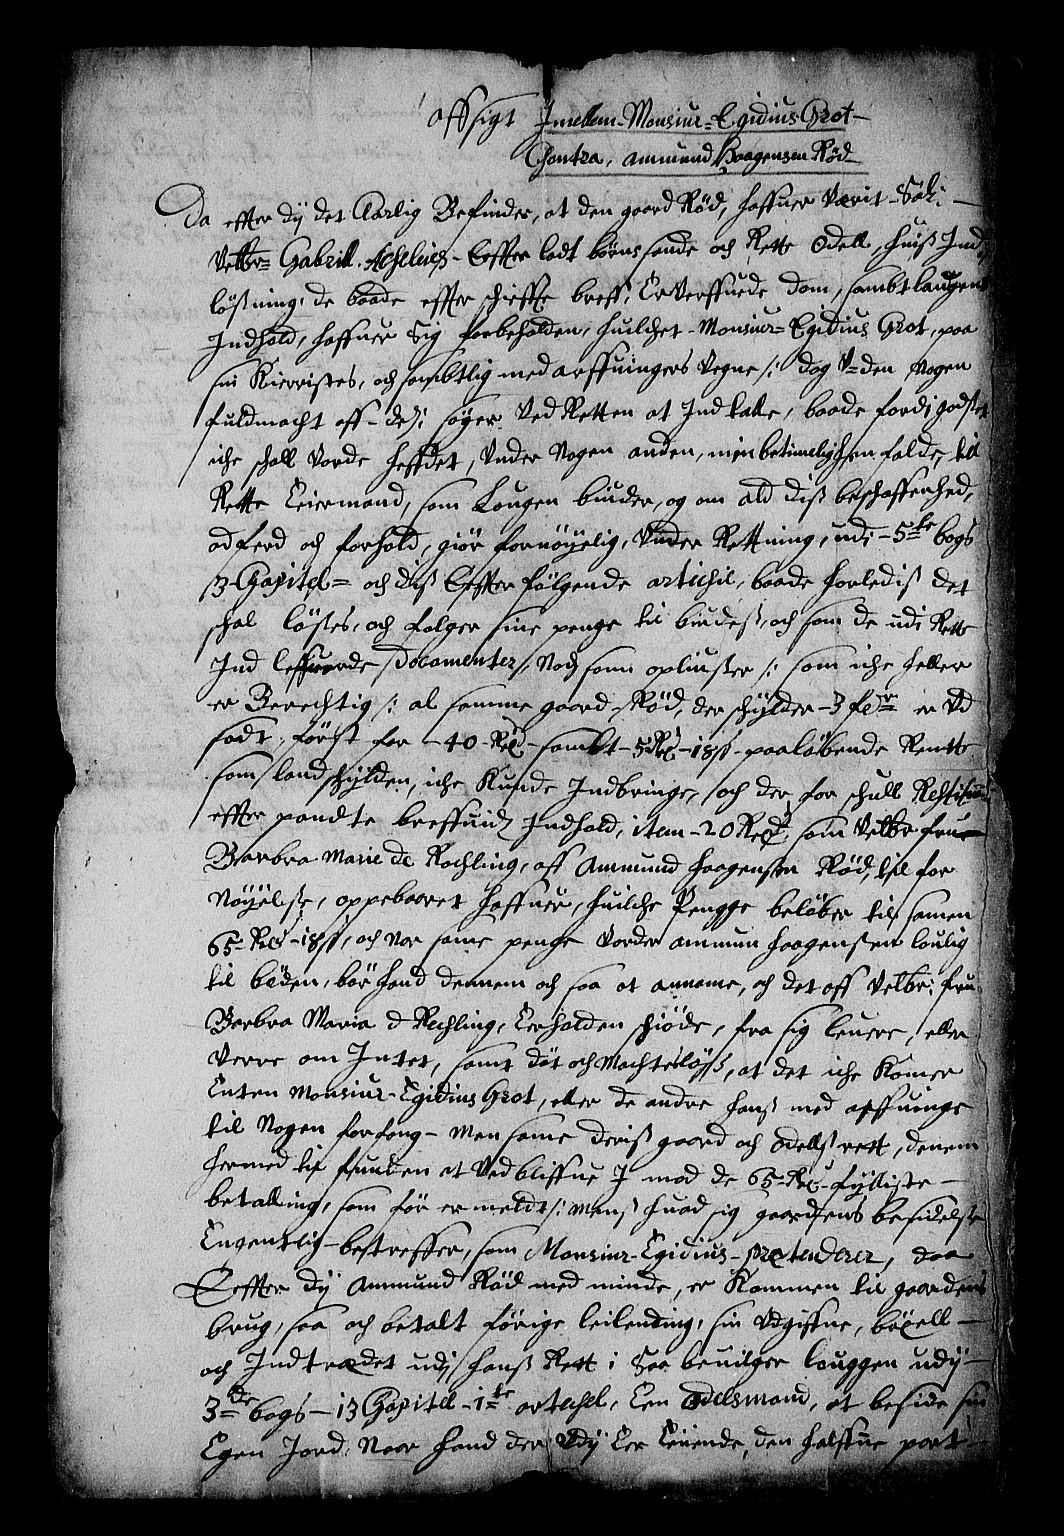 Affsigt Imellem Monsiur Egidius Grot
Contra, Ammund Haagensen Rød
Da effter dy det Klarlig Befindes, at den gaard Rød, haffuer Verit Sal:
Velbr: Gabriell Achelues Effter ladt børns sande och Rette Odell, huis Ind
løssning, de baade effter schifft breff, Erverffuede dom, sambt laugens
Indhold, haffuer Sig forbeholden, huilchet Monsiur Egidius Grot, paa
sin Kierristes, och samtlig med arffuingers Vegne /: dog U-den Nogen
fuldmacht aff dem :/ søger Ved Retten at Indtale, baade fordj godset
iche schall vorde hefftet, Under Nogen anden, men betimelig hen falde, till
Rette Eiermand, som Lougen binder, og om ald dis beschaffenhed,
adferd och forhold, giør fornøyelig, Under Rettning, udi 5te bogs
3 Capitel och dis Effter følgende artichil, baade hvorledis det
schal løstes, och følger sine penge til bindes, och som de udi Rette
Ind leffuerde Documenter, Noch som opliuster /: som iche heller
er Berechtig :/ al somme gaard Rød, der schylder 3 fdr er Ud
sadt, først for 40 Rd sambt 5 Rd 18 s paaløbende Rentte
som landschylden, iche Kunde Indbringe, och der for schull
effter pandte breffuids Indhold, item 20 Rd som Velbr fru
Barbra Marie de Rochling, aff Ammund Haagensen Rød, til for
Nøyelse, oppebaaret haffuer, huilche Pengge beløber til samen
65 Rd 18 s, och Nar same penge Vorder Ammun Haagensen loulig
til bøden, bør hand dennem och saa at anname, och det aff Velbr: fru
Barbra Maria d Rechling, Erholden schiøde, fra sig leuere, eller
Verre om Intet, samt døt och Machtesløss, at det iche Komer
Enten Monsiur Egidius Grot, eller de andre hans med arffuinge
til Nogen forfang Men same deris gaard och Odells rett, denem
hermed til funden at Ved bliffue J mod de 65 Rd fylliste
betalling, som før er meldt /: mens huad sig gaardsens besidelse
Engentlig bestreffer, som Monsiur Egidius prætenderer, daa
Effter dy Ammund Rød med minde, er Kommen til gaardens
brug, saa och betalt førige leilending, sin Udgiffue, bøxell
och Indtrædet udj hans Rett i Saa beuilger louggen udy
3de bogs 13 Capitel 1te artichel, Een Odelsmand, at beside sin
Egen Jord, Naar hand der Udy Eer Eiende, den halffue part